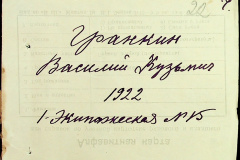 22
Гранкин
Василий Кузьмич
1922
1-Экипажеская №15